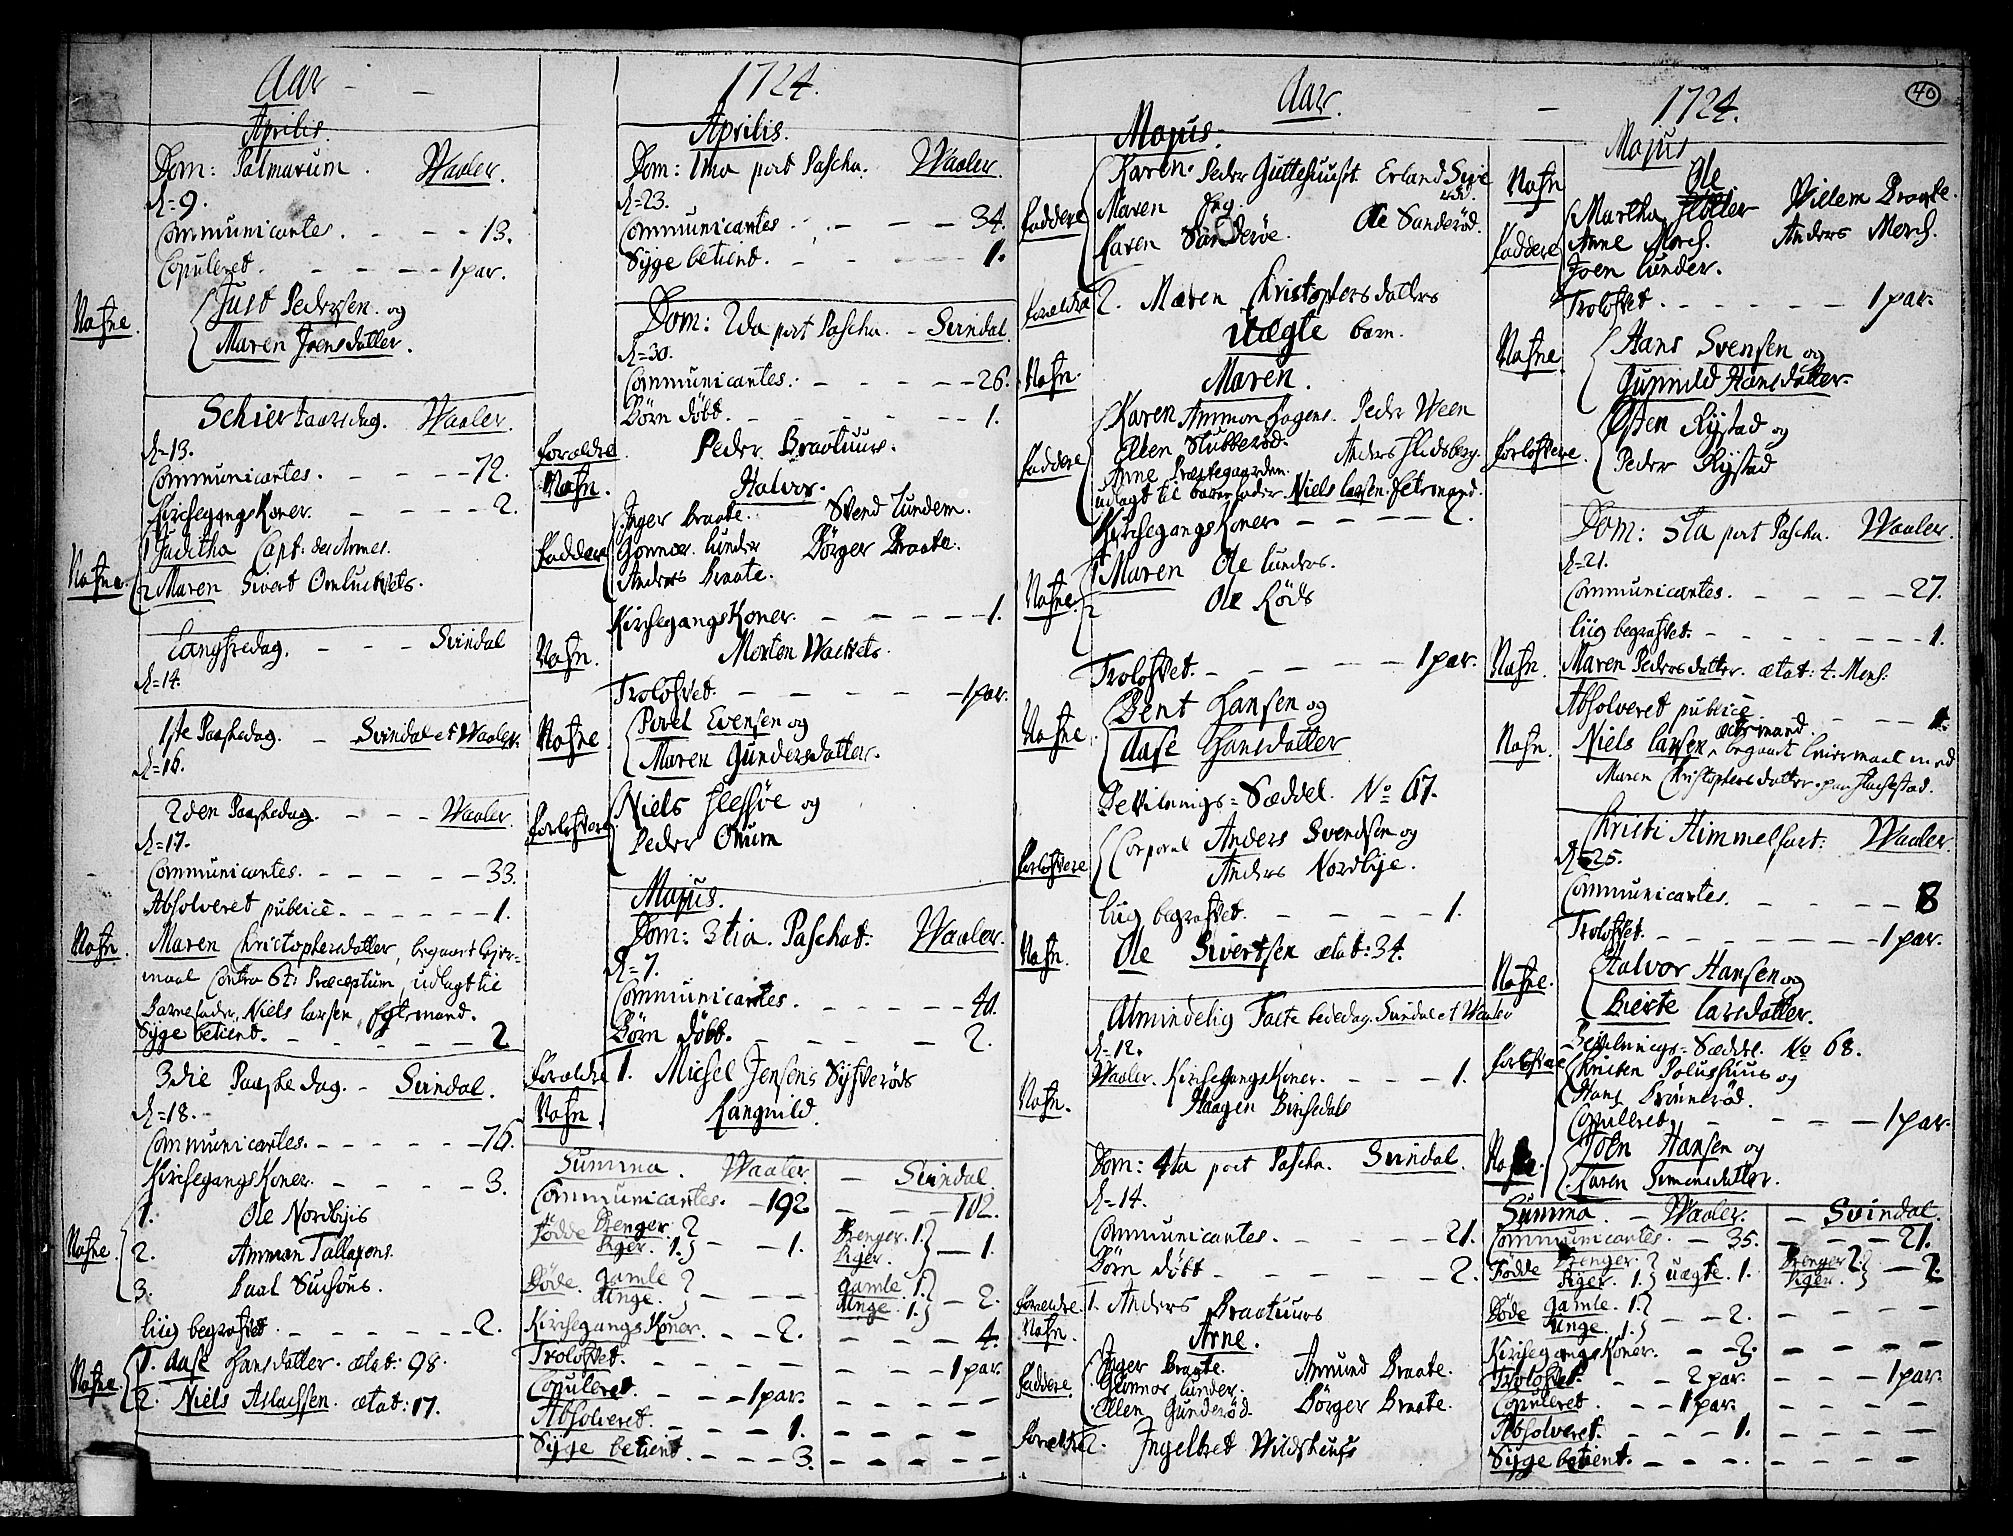 Aar - -
Aprilis.
Dom: Palmarum. Waaler.
d=9.
Communicantes. - - - 13.
Copuleret. - - - - 1 par.
Nafne. Just Pedersen og
Maren Joensdatter.
Schiertaarsdag. Waaler.
d=13.
Communicantes. - - - - 72.
Kirchegangs Koner. - - - - 2.
Nafne. 1 Juditha Capt: des Armes.
2 Maren Sivert
Langfredag. - - - Svindal
d=14.
1ste Paaskedag. - Svindal et Waaler.
d=16.
2den Paaskedag. - - - Waaler.
d=17.
Communicantes. - - - - - 33.
Absolveret publicè. - - - - - 1.
Nafn. Maren Christophersdatter, begaaet lejer-
maal contra 6t: Præceptum, udlagt til
Barnefader, Niels Larsen, Egtemand.
Syge betient. - - - - - 2
3die Paaske dag. - Svindal.
d=18.
Communicantes. - - - - - - 76.
Kirchegangs Koner. - - - - 3.
Nafne. 1. Ole Nordbyis
2. Amman Tallagens.
3. Paal
Liig begrafvet. - - - - - - 2.
Nafne. 1. Aase Hansdatter. ætat: 98.
2. Niels Aslachsen. ætat: 17.
1724.
Aprilis.
Dom: 1ma post Pascha. Waaler.
d=23.
Communicantes - - - - 34.
Syge betient. - - - - 1.
Dom: 2da post Pascha. - Svindal.
d=30.
Communicantes. - - - - - 26.
Børn døbt. - - - - - 1.
Forældre Peder Braatuur.
Nafn. Halvor.
Faddere Inger Braate. Svend Lundem.
Gonnor Lunder Børger Braate.
Anders Braate.
Kirchegangs Koner. - - - - - 1.
Nafn. Morten
Trolofvet. - - - - - 1 par.
Nafne Povel Evensen og
Maren Gundersdatter.
Forlofvere Niels og
Peder Onum
Majus.
Dom: 3tia. Paschat. Waaler.
d=7.
Communicantes. - - - - 40.
Børn døbt. - - - - 2.
Forældre 1. Michel Jensens
Nafn. Langnild.
Summa. Waaler. - Svindal.
Communicantes. - 192. - - - 102.
Fødde Drenger. - - 1. Drenger. 1. - 1.
Piger. 1. Piger.
Døde. Gamle - - - Gamle. 1. - 2.
Unge. Unge 1.
Kirchegangs Koner. - - 2. - - - - 4.
Trolofvet. - - - - - - - 1 par.
Copuleret. - - - 1 par. - - - - -
Absolveret. - - - - 1. - - - - -
Syge betient. - - - - 3. - - - - -
Aar.
Majus.
Faddere Karen Peder Erland
Maren
Karen Sanderøe. Ole Sanderød.
Forældre 2. Maren Christophersdatters
Uægte barn.
Nafn. Maren.
Faddere Karen Amman Hagens. Peder Ween
Ellen Stubberød. Anders
Anne Præstegaarden.
udlagt til barnefader. Niels Larsen. Egtemand.
Kirchegangs Koner - - - - 2.
Nafne. 1 Maren Ole Lunders.
2 Ole Røds
Trolofvet. - - - - - - 1 par.
Nafne Bent Hansen og
Aase Hansdatter
Bevilnings=Sæddel. No 67.
Forlofvere Corporal Anders Svendsen og
Anders Nordbye.
Liig begrafvet. - - - - - 1.
Nafn. Ole Sivertsen ætat: 34.
Almindelig Faste bededag. Svindal et Waaler
d=12.
Waaler. Kirchegangs Koner. - - - 1.
Nafn. Haagen Birchedals
Dom: 4ta post Pascha. Svindal.
d=14.
Communicantes. - - - - - 21.
Børn døbt - - - - - - 2.
Forældre 1. Anders Braatuurs
Nafn. Arne.
Faddere. Inger Braate. Amund Braate.
Gunnor Lunder.
Ellen Gunderød. Børger Braate.
Forældre 2. Ingebret
- 1724. 40
Majus
Nafn Ole
Faddere Martha Willem Braate.
Anne Morch. Anders Morch.
Joen Lunder.
Trolofvet. - - - - - - 1 par.
Nafne Hans Svensen og
Gunnild Hansdatter.
Forlofvere. Østen Rystad og
Peder Rystad
Dom: 5ta post Pascha. Waaler.
d=21.
Communicantes. - - - - - 27.
Liig begrafvet. - - - - - - - 1.
Nafn. Maren Pedersdatter. ætat: 4. Mens:
Absolveret publicè - - - - 1.
Nafn. Niels Larsen, Ectemand. begaaet leiermaal med
Maren Christophersdatter. paa
Christi Himmelfart. Waaler.
d=25.
Communicantes. - - - - 8
Trolofvet. - - - - - - - 1 par.
Nafne. Halvor Hansen og
Bierte Larsdatter.
Bevilnings=Sæddel. No 68.
Forlofvere Christen og
Hans
Copuleret. - - - - - 1 par.
Nafne. Joen Hansen og
Karen Simensdatter.
Summa. - Waaler. - Svindal.
Communicantes. - 35. - - - 21.
Fødde Drenger uægte. 1. Drenger 2. - 2
Piger. 1. Piger.
Døde Gamle. 1. - - 2. - - - - -
Unge. 1.
Kirchegangs Koner. - - 3. - - - - -
Trolofvet. - - 2 par. - - - - 1 par.
Copuleret. - - 1 par. - - - - -
Absolveret. - - - - 1. - - - - -
Syge betient. - - - - - - - - -